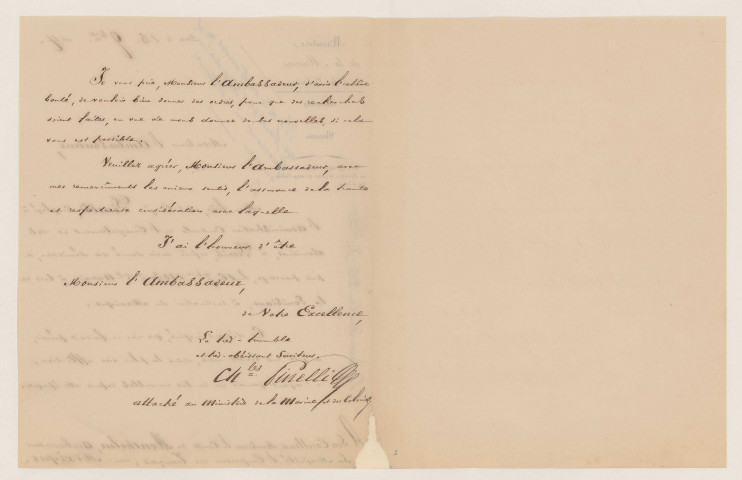 Je vous prie, Monsieur l'Ambassadeur, d'avoir l'extrême
bonté, de vouloir bien donner des ordres, pour que des recherches
soient faites, en vue de nous donner de les nouvelles, si cela
vous est possible.
Veuillez agréer, Monsieur l'Ambassadeur, avec
mes remerciments les mieux sentis, l'assurance de la haute
et respectueuse considération avec laquelle
J'ai l'honneur d'être
Monsieur l'Ambassadeur,
de Votre Excellence,
Le très-humble
et très-obéissant Serviteur.
Ch les Pinelli
attaché au Ministère de la Marine et des Colonies